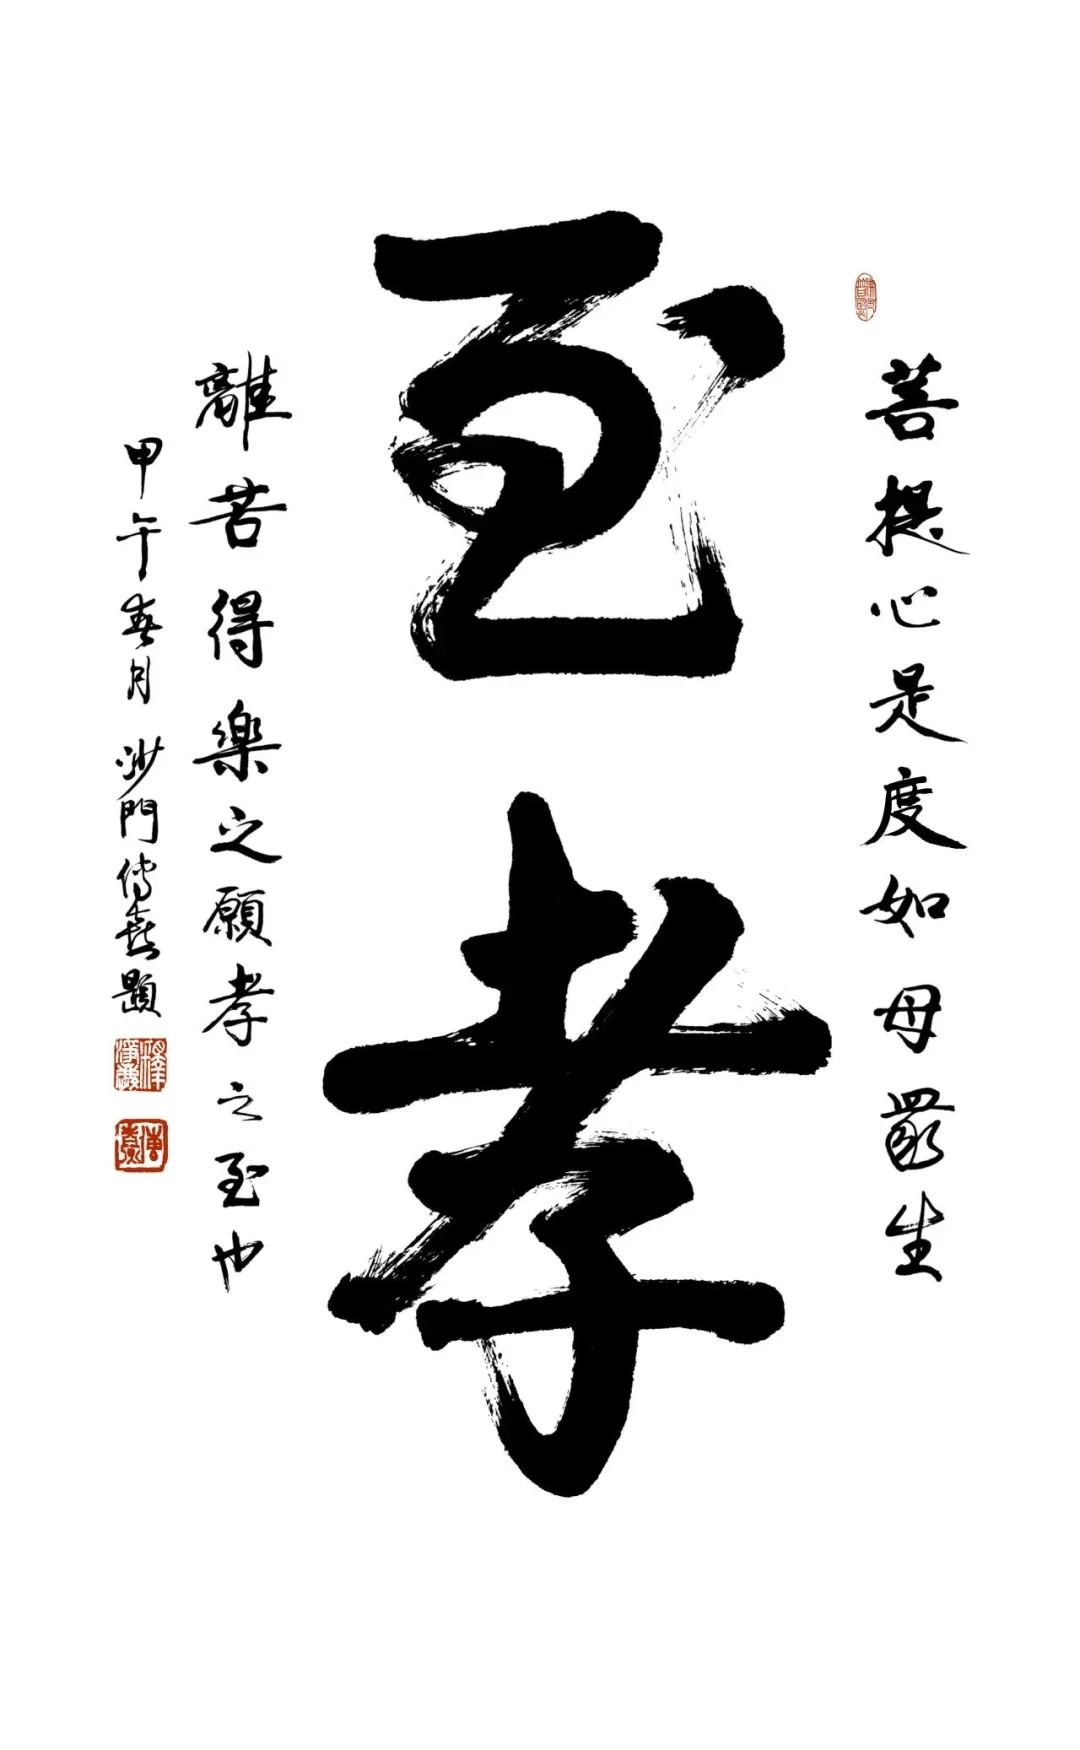 菩提心是度如母眾生
至孝
離苦得樂之願孝之至也
甲午春月沙門傳喜題